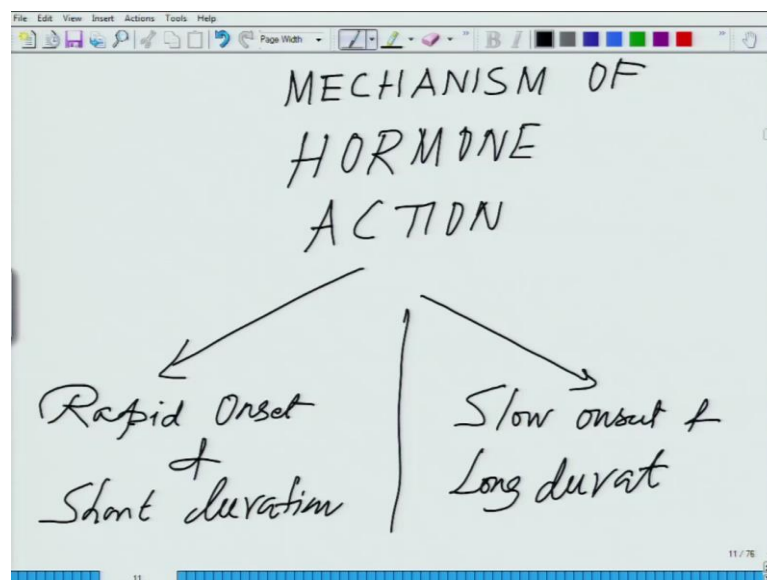 File Edit View Insert Actions Tools Help
Page Width B I
MECHANISM OF
HORMONE
ACTION
Rapid Onset
&
Short duration
Slow onset &
Long durat
11 / 76
11